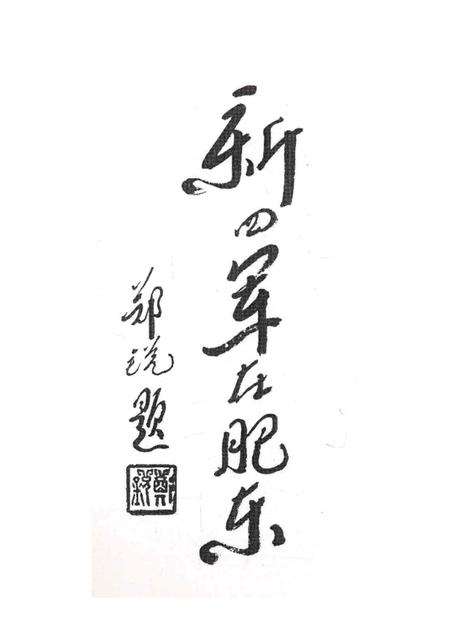 新四军在肥东
郑锐题
鄭銳